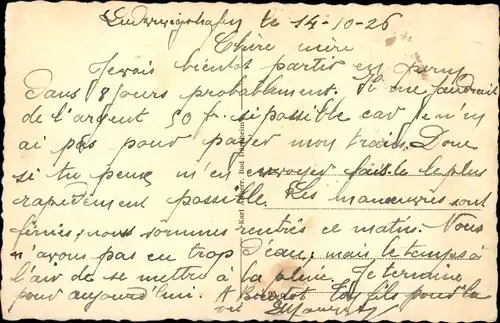 Ludwigshafen le 14-10-26
Chère mère
Je vais bientot partir en perm
Dans 8 jours probablement. Il me faudrait
de l'argent 50 f. si possible car je n'en
ai pas pour payer mon train. Donc
si tu peux m'en envoyer fais-le le plus
rapidement possible. Les manœuvres sont
finies, nous sommes rentrés ce matin. Nous
n'avons pas eu trop d'eau, mais le temps à
l'air de se mettre à la pluie. Je termine
pour aujourd'hui. A Bientot ton fils pour la
vie
Karl Bad Dürkheim